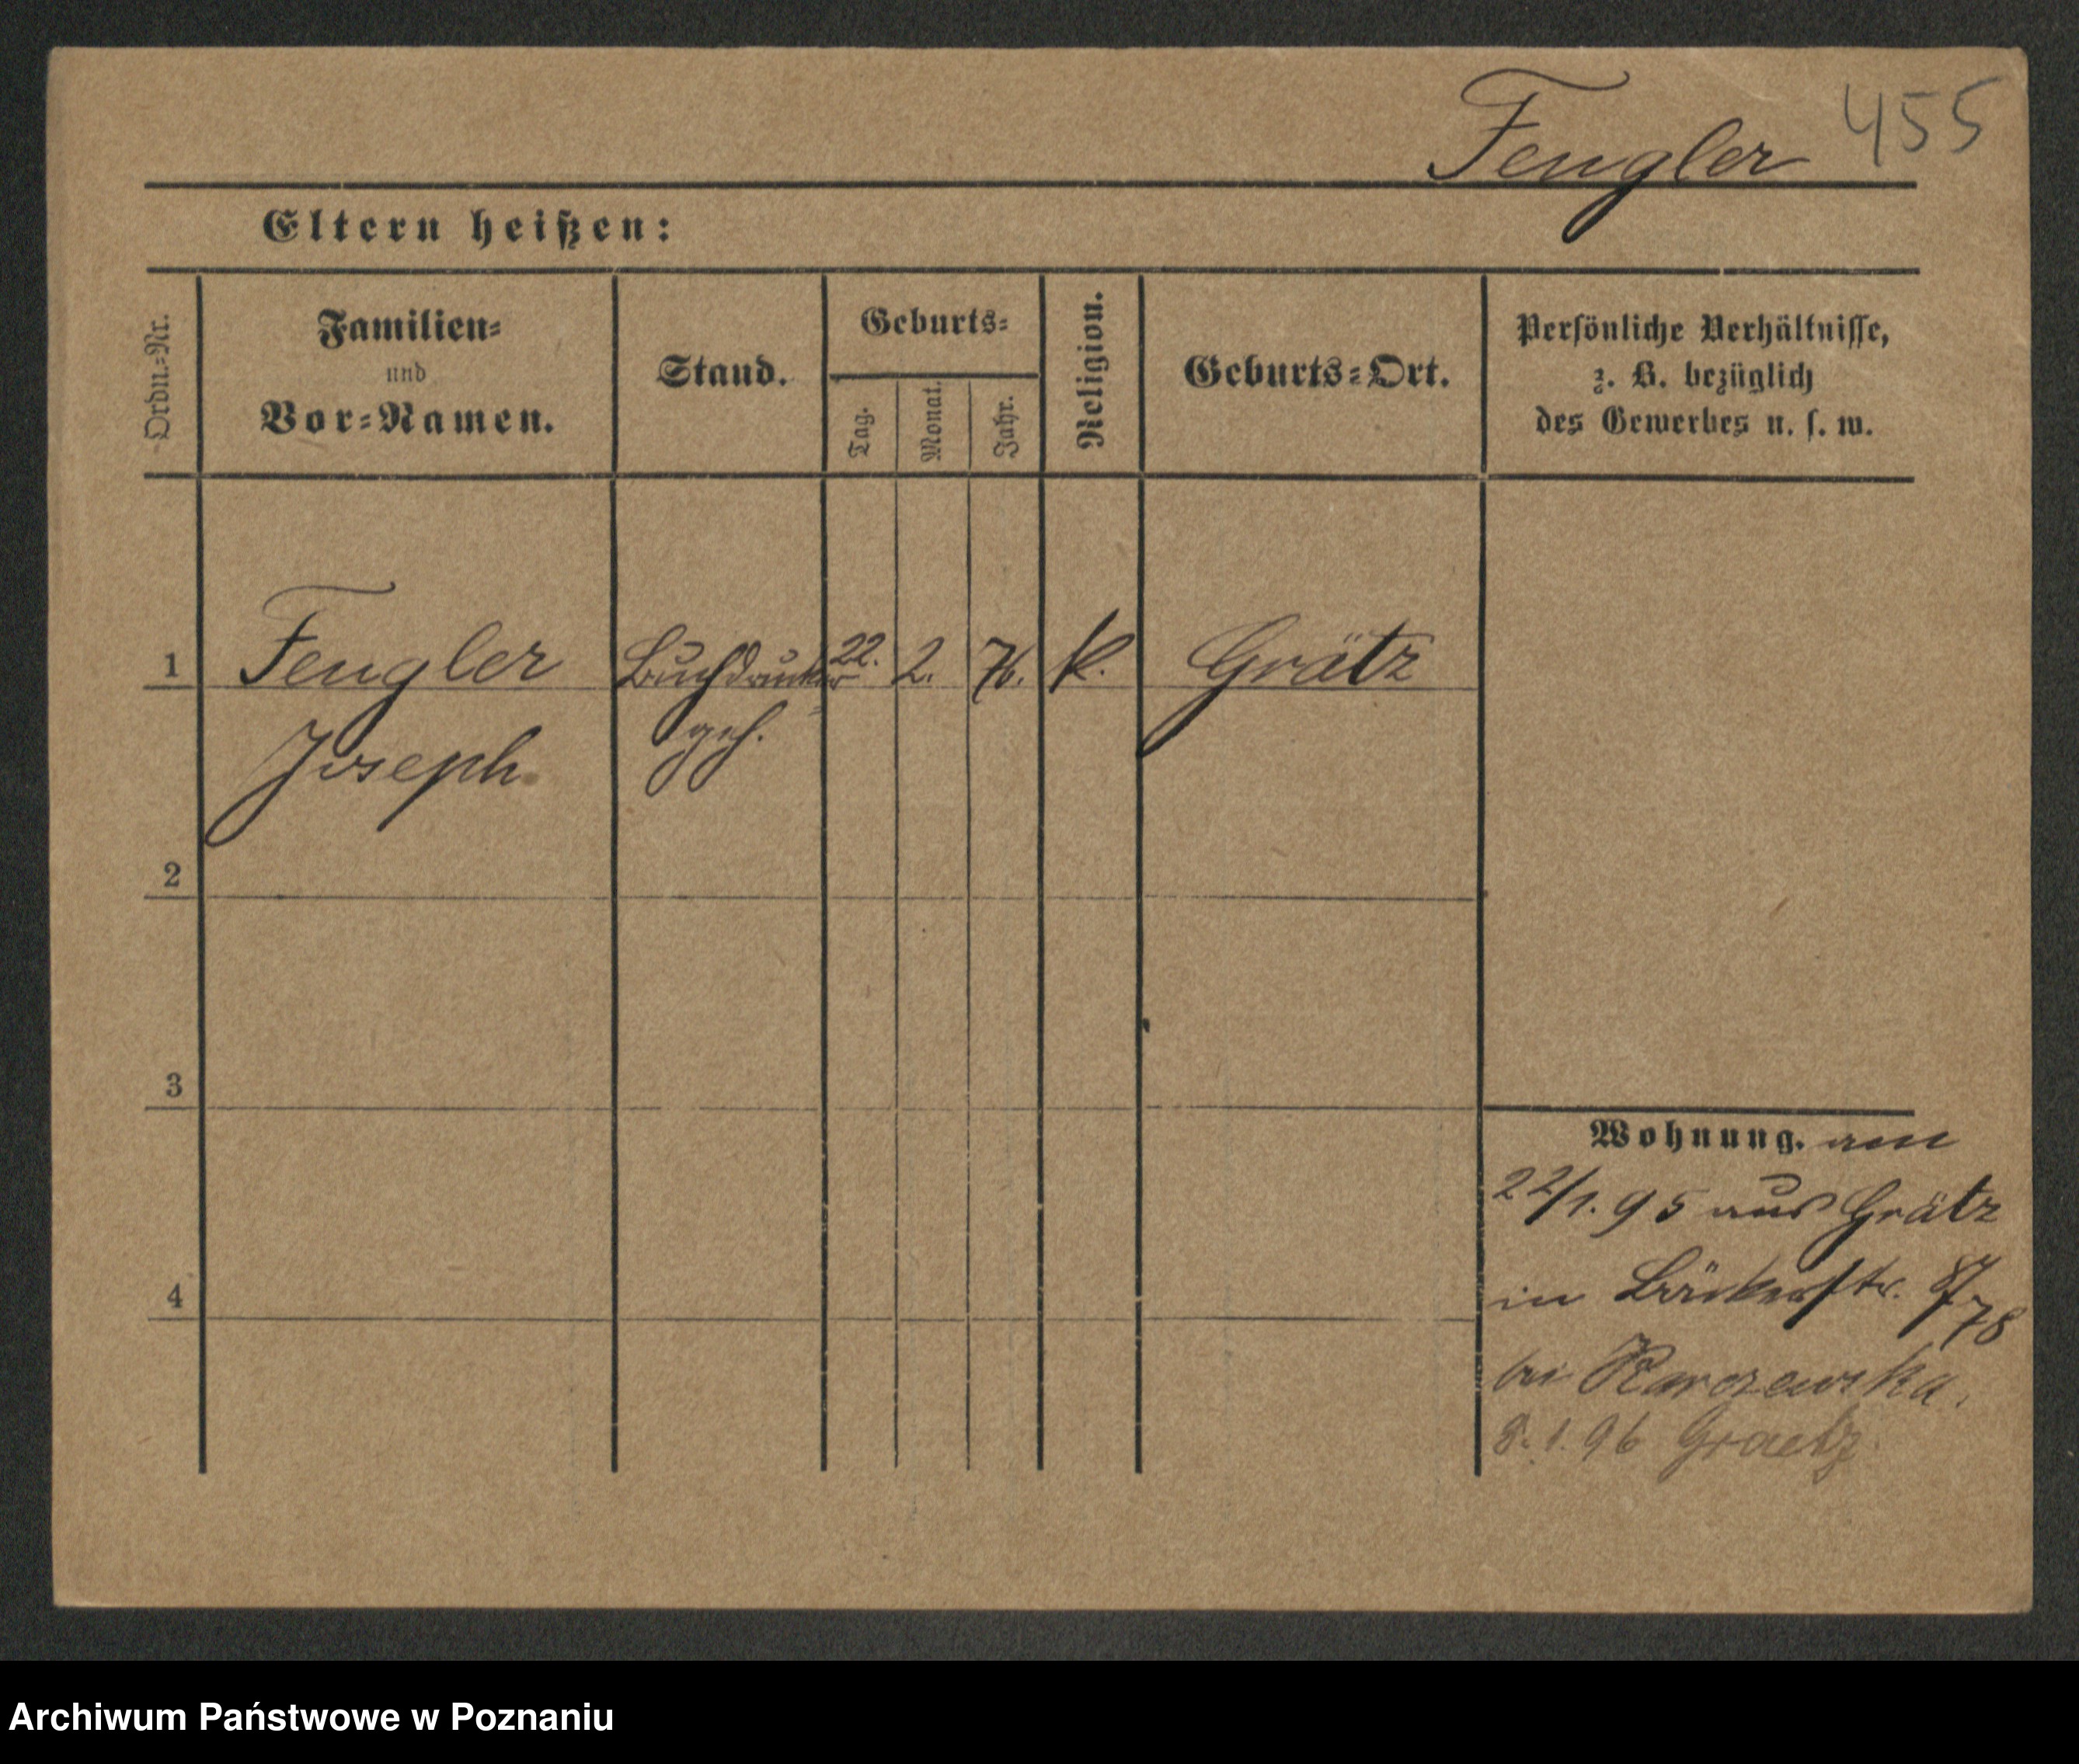 Fengler 455
Eltern heißen:
Ordn.-Nr.
Familien-
und
Vor-Namen.
Stand.
Geburts-
Tag.
Monat.
Jahr.
Religion.
Geburts-Ort.
Persönliche Verhältnisse,
z. B. bezüglich
des Gewerbes u. s. w.
1 Fengler Buchdrucker= 22. 2. 76. k. Grätz
Joseph geh.
2
3
4
Wohnung. am
22/1. 95 aus Grätz
in Bäckerstr.
bei Karczewska,
8. 1. 96 Graetz.
Archiwum Państwowe w Poznaniu